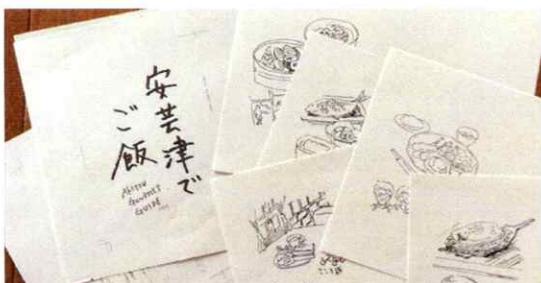 安芸津で
ご飯
AKITSU
GOURMET
GUIDE